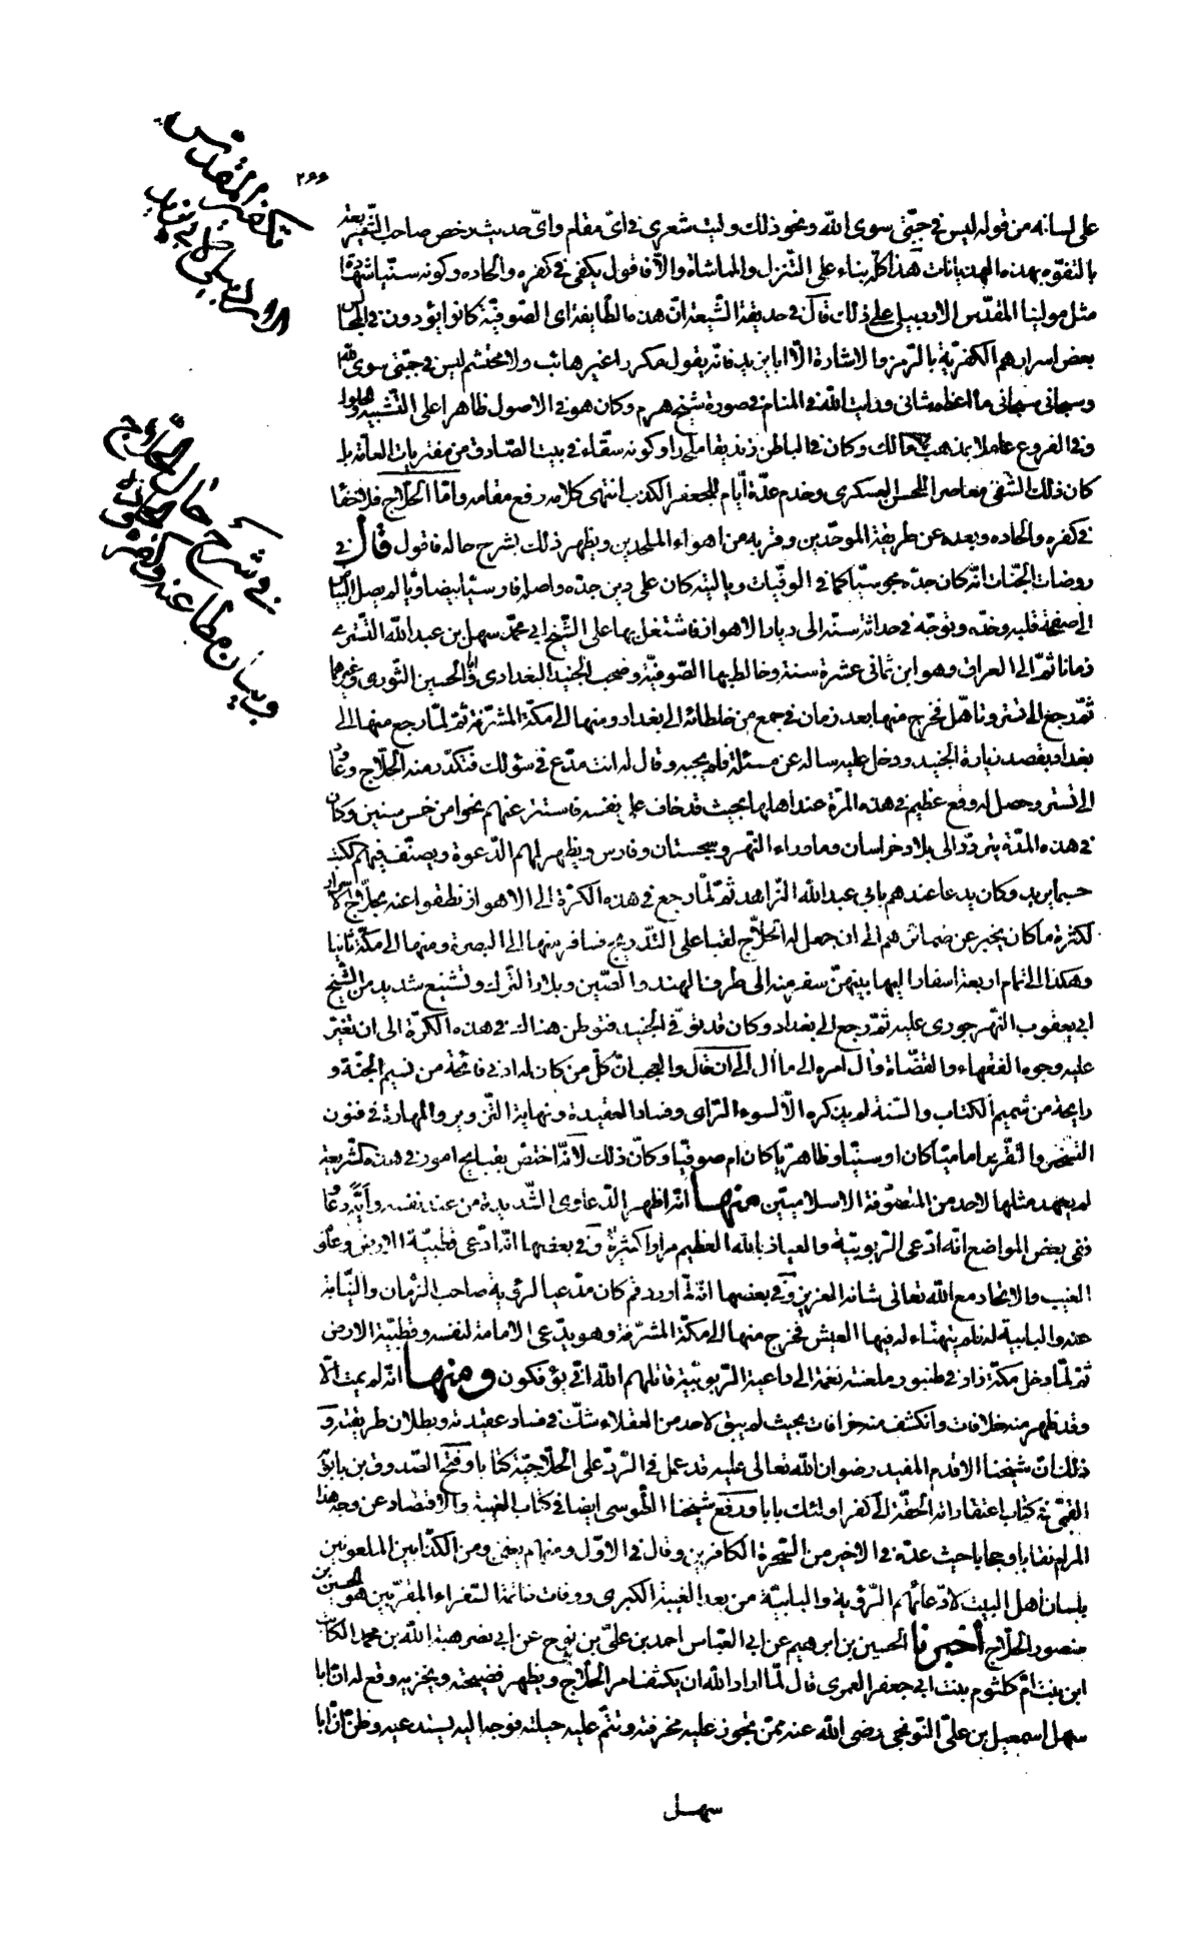 ٢٦٦
تكفير المقدس
الاردبيلى لابى يزيد
على لسانه من قوله ليس فى جبّتى سوى الله ونحو ذلك وليت شعرى فى اىّ مقام واىّ حديث رخص صاحب الشّريعة
بالتفوّه بهذه الهذيانات هذا كلّه بناء على التّنزل والمماشاة والّا فاقول يكفى فى كفره والحاده وكونه سنّيا شهادة
مثل مولينا المقدّس الاردبيلى على ذلك قال فى حديقة الشّيعة انّ هذه الطّايفة اى الصّوفيّة كانوا يؤدون فى المجالس
بعض اسرارهم الكفريّة بالرّمز والاشارة الّا ابا يزيد فانّه يقول مكررا غير هائب ولا محتشم ليس فى جبّتى سوى الله
وسبحانى سبحانى ما اعظم شانى ورايت الله فى المنام فى صورة شيخ هرم وكان هو فى الاصول ظاهرا على التّشبيه والحلول
وفى الفروع عاملا بمذهب مالك وكان فى الباطن زنديقا ملحدا وكونه سقّاء فى بيت الصّادق من مفتريات العامّة بل
كان ذلك الشّقى معاصرا للحسن العسكرى وخدم عدّة أيّام لجعفر الكذّاب انتهى كلامه رفع مقامه وامّا الحلّاج فلا خفاء
فى كفره والحاده وبعده عن طريقة الموحّدين وقربه من اهواء الملحدين ويظهر ذلك بشرح حاله فاقول قال فى
روضات الجنّات انّه كان جدّه مجوسيّا كما فى الوفيّات وياليته كان على دين جدّه واصله فارسيّا بيضاويّا لم يصل البيا
الى صفحة قلبه وخدّه وتوجّه فى حداثة سنّه الى ديار الاهواز فاشتغل بها على الشّيخ ابى محمّد سهل بن عبد الله التّسترى
زمانا ثمّ الى العراق وهو ابن ثمانى عشرة سنة وخالط بها الصّوفيّة وصحب الجنيد البغدادى وابا الحسين النّورى وغيرهما
ثمّ رجع الى تستر وتاهّل فخرج منها بعد زمان فى جمع من خلطائه الى بغداد ومنها الى مكّة المشرّفة ثمّ لمّا رجع منها الى
بغداد بقصد زيارة الجنيد ودخل عليه ساله عن مسئلة فلم يجبه وقال له انت مدّع فى سؤلك فتكدّر منه الحلّاج وعاد
الى تستر وحصل له وقع عظيم فى هذه المرّة عند اهلها بحيث قد خاف على نفسه فاستتر عنهم نحوا من خمس سنين وكان
فى هذه المدّة يتردّد الى بلاد خراسان وماوراء النّهر وسجستان وفارس ويظهر لهم الدّعوة ويصنّف فيهم الكتب
حسبما يريد وكان يدعا عندهم بابى عبد الله الزّاهد ثمّ لمّا رجع فى هذه الكرّة الى الاهواز نطقوا عنه بحلّاج الاسرار
لكثرة ما كان يخبر عن ضمائرهم الى ان جعل له الحلّاج لقبا على التّدريج فسافر منها الى البصرة ومنها الى مكّة ثانيا
وهكذا الى تمام اربعة اسفار اليها بينهنّ سفر منه الى طرف الهند والصّين وبلاد التّرك وتشنيع شديد من الشّيخ
ابى يعقوب النّهرجورى عليه ثمّ رجع الى بغداد وكان قد توفّى الجنيد فتوطن هنالك فى هذه الكرّة الى ان تغيّر
عليه وجوه الفقهاء والقضّاة وال امره الى ما ال الى ان قال والعجب انّ كلّ من كان له ادنى فائحة من نسيم الجنّة و
رايحة من شميم الكتاب والسّنة لم يذكره الّا لسوء الرّاى وفساد العقيدة ونهاية التّزوير والمهارة فى فنون
التّسخير والتّقرير اماميّا كان او سنّيا وظاهريّا كان ام صوفيّا وكانّ ذلك لانّه اختصّ بقبايح امور فى هذه الشّريعة
لم يعهد مثلها لاحد من المتصوّفة الاسلاميّين منها انّه اظهر الدّعاوى الشّديدة من عند نفسه
ففى بعض المواضع انّه ادّعى الرّبوبيّة والعياذ بالله العظيم مرارا كثيرة وفى بعضها انّه ادّعى قطبيّة الارض وعلم
الغيب والاتّحاد مع الله تعالى شانه العزيز وفى بعضها انّه لمّا ورد قم كان مدّعيا لرؤية صاحب الزّمان والنّيابة
عنه والبابية له فلم يتهنّاء له فيها العيش فخرج منها الى مكّة المشرّفة وهو يدّعى الامامة لنفسه وقطبيّة الارض
ثمّ لمّا دخل مكّة زاد فى طنبور ملعنته نغمة الى داعية الرّبوبيّة قاتلهم الله انّى يؤفكون ومنها انّه لم يمت الّا
وقد ظهر منه خلافات وانكشف منه خرافات بحيث لم يبق لاحد من العقلاء شكّ فى فساد عقيدته وبطلان طريقته و
ذلك انّ شيخنا الاقدم المفيد رضوان الله تعالى عليه قد عمل فى الرّد على الحلّاجيّة كتابا وفتح الصّدوق بن بابويه
القمّى فى كتاب اعتقاداته الحقّة الى كفر اولئك بابا ودفع شيخنا الطّوسى ايضا فى كتاب الغيبة والاقتصاد عن وجه هذا
المرام نقابا وحجابا حيث عدّه فى الاخير من السّحرة الكافرين وقال فى الاوّل ومنهم يعنى ومن الكذّابين الملعونين
بلسان أهل البيت لادّعائهم الرّؤية والبابيّة من بعد الغيبة الكبرى ووفات خاتمة السّفراء المقرّبين هو الحسين بن
منصور الحلّاج أخبرنا الحسين بن ابرهيم عن ابى العبّاس احمد بن علىّ بن نوح عن ابى نصر هبة الله بن محمد الكاتب
ابن بنت امّ كلثوم بنت ابى جعفر العمرى قال لمّا اراد الله ان يكشف امر الحلّاج ويظهر فضيحته ويخزيه وقع له انّ ابا
سهل اسمعيل بن علىّ النّوبختى رضى الله عنه ممّن تجوز عليه مخرقته وتتمّ عليه حيلته فوجه اليه يستدعيه وظنّ انّ ابا
فى شرح حال الحلّاج
وبيان مطاعنه وكفره
سهل